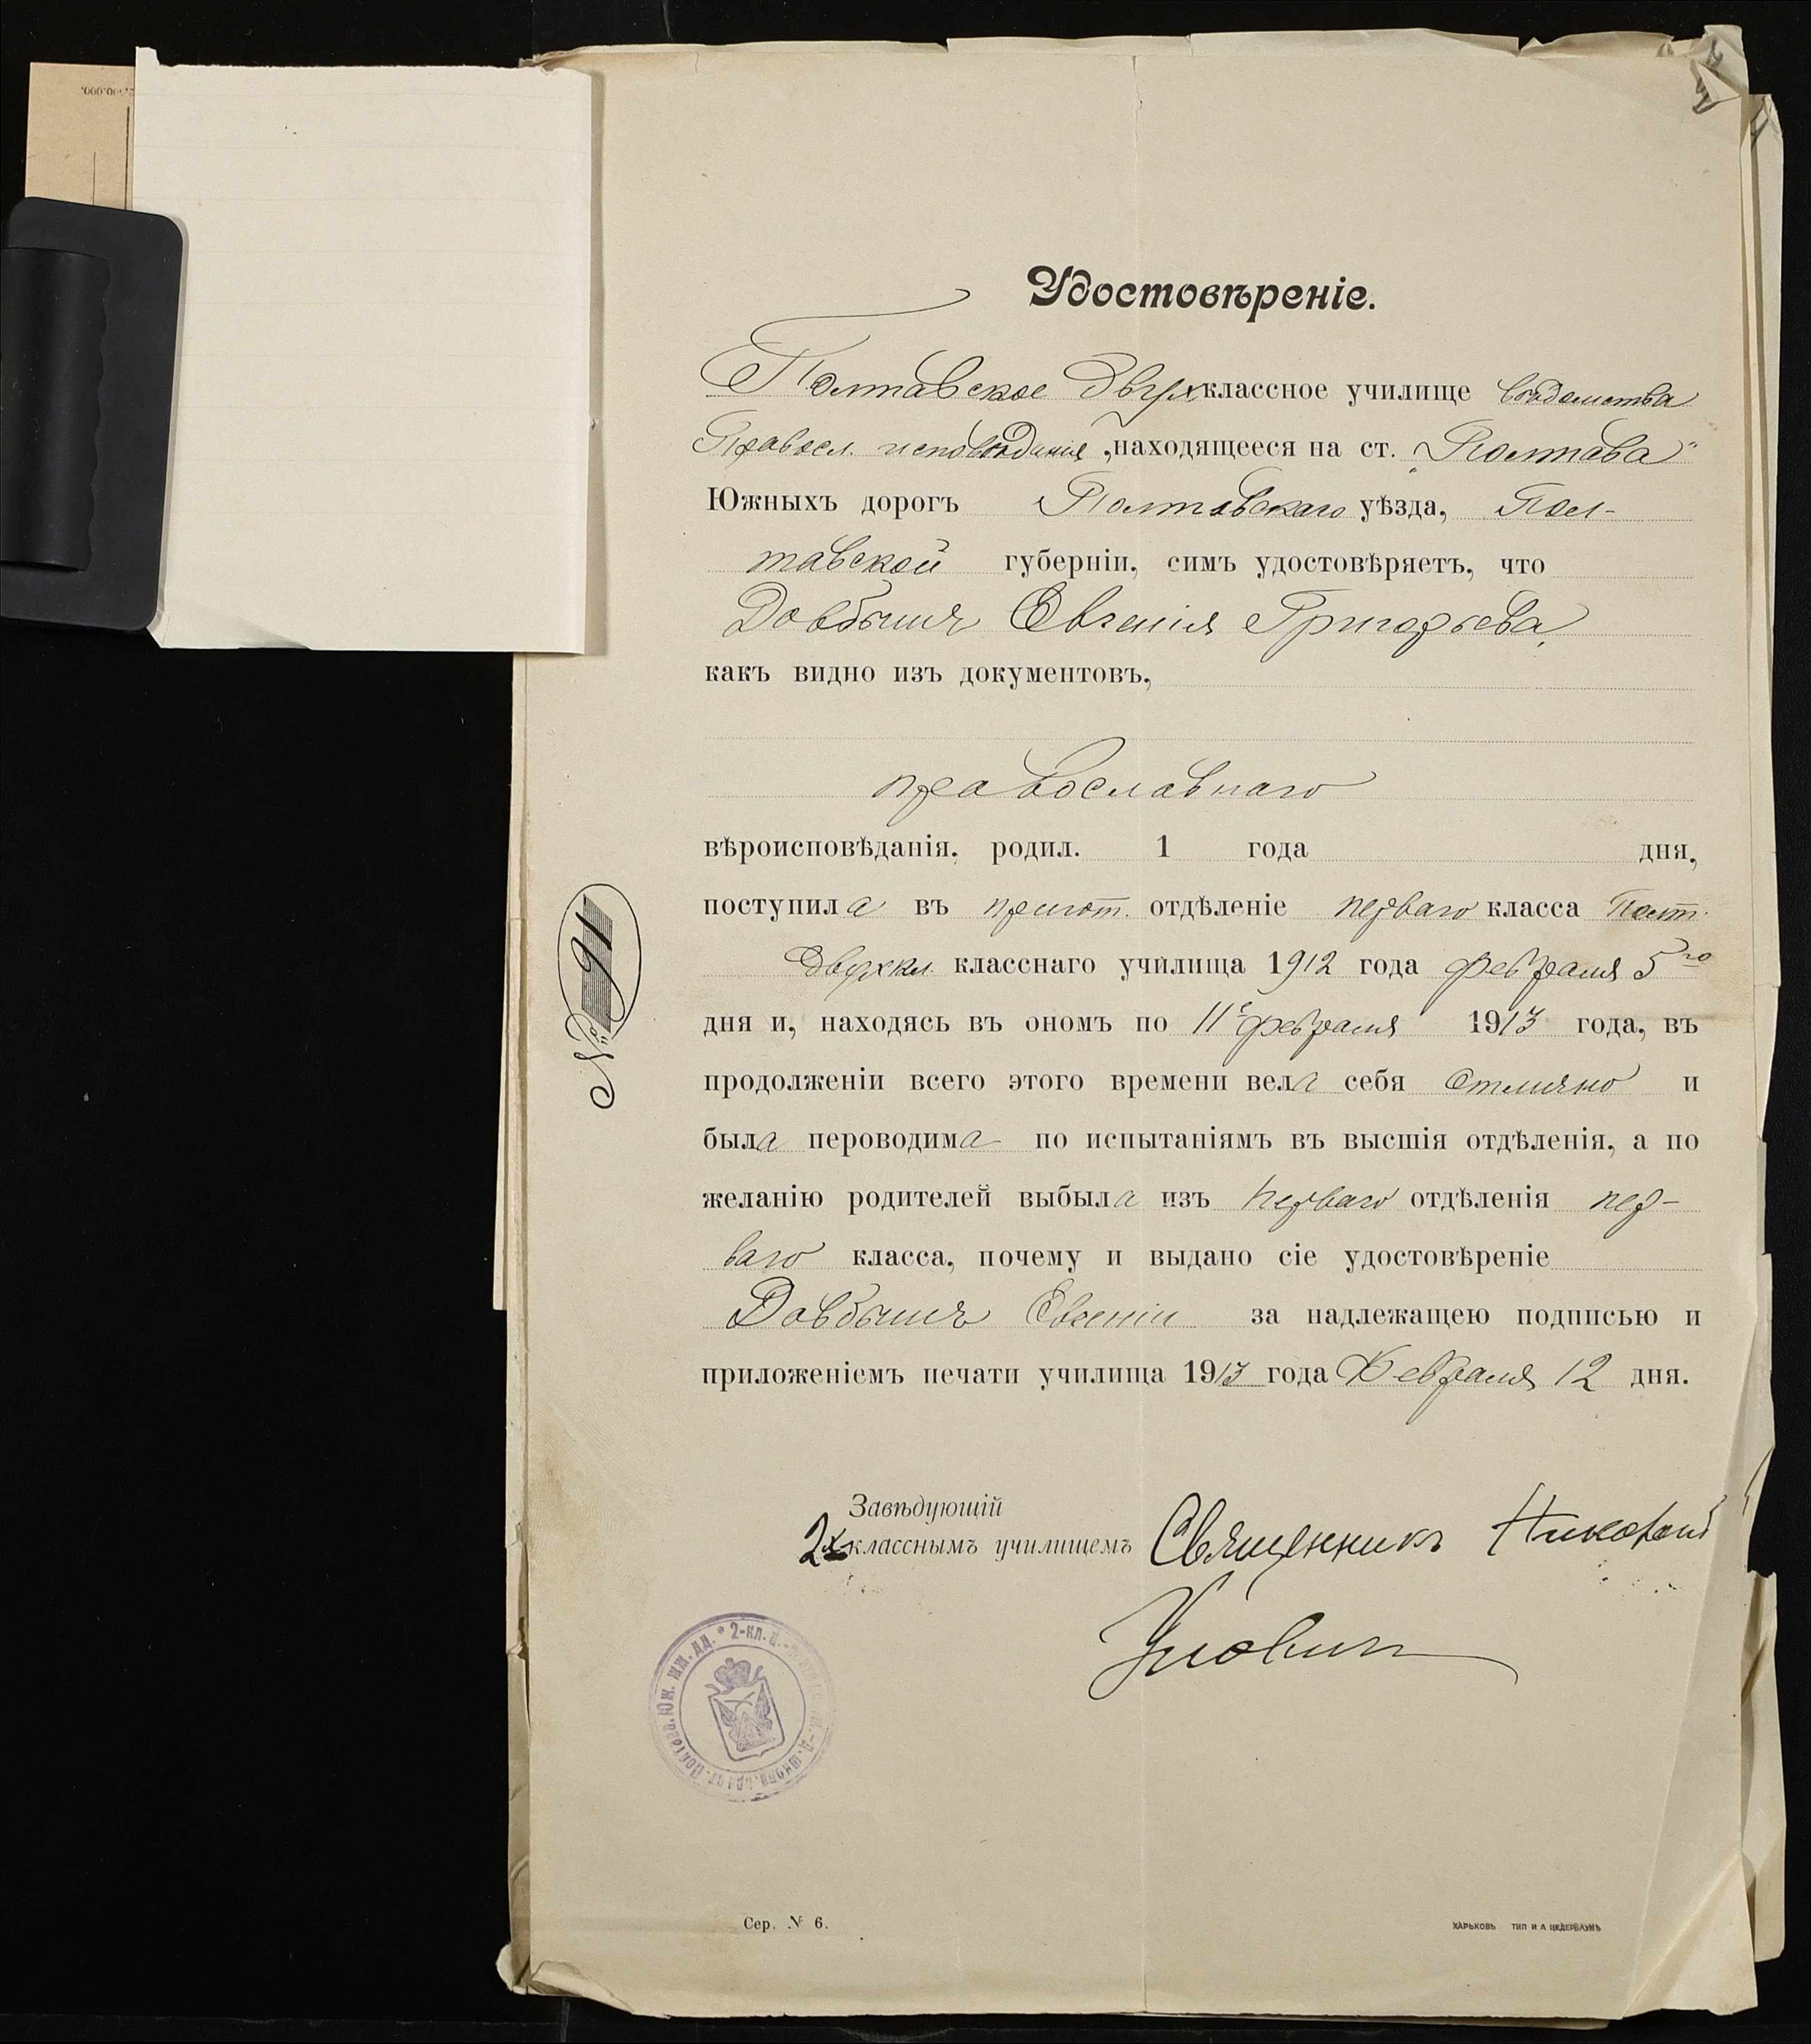 2.500.000.
Удостовѣреніе.
Полтавское двухклассное училище вѣдомства
Правосл. исповѣданія, находящееся на ст. „Полтава"
Южныхъ дорогъ Полтавскаго уѣзда, Пол-
тавской губерніи, симъ удостовѣряетъ, что
Довбышъ Евгенія Григорьева,
какъ видно изъ документовъ,
православнаго
вѣроисповѣданія, родил. 1 года дня,
поступила въ пригот. отдѣленіе перваго класса Полт.
двухкл. класснаго училища 1912 года февраля 5го
дня и, находясь въ ономъ по 11е февраля 1913 года, въ
продолженіи всего этого времени вела себя отлично и
была пероводима по испытаніямъ въ высшія отдѣленія, а по
желанію родителей выбыла изъ перваго отдѣленія пер-
ваго класса, почему и выдано сіе удостовѣреніе
Довбышъ Евгеніи за надлежащею подписью и
приложеніемъ печати училища 1913 года Февраля 12 дня.
№ 16
Завѣдующій
2х класснымъ училищемъ Священникъ Николай
Ю.Ж. ЖД. * 2-КЛ.
Сер. № 6.
ХАРЬКОВЪ ТИП И А ЦЕДЕРБАУМЪ